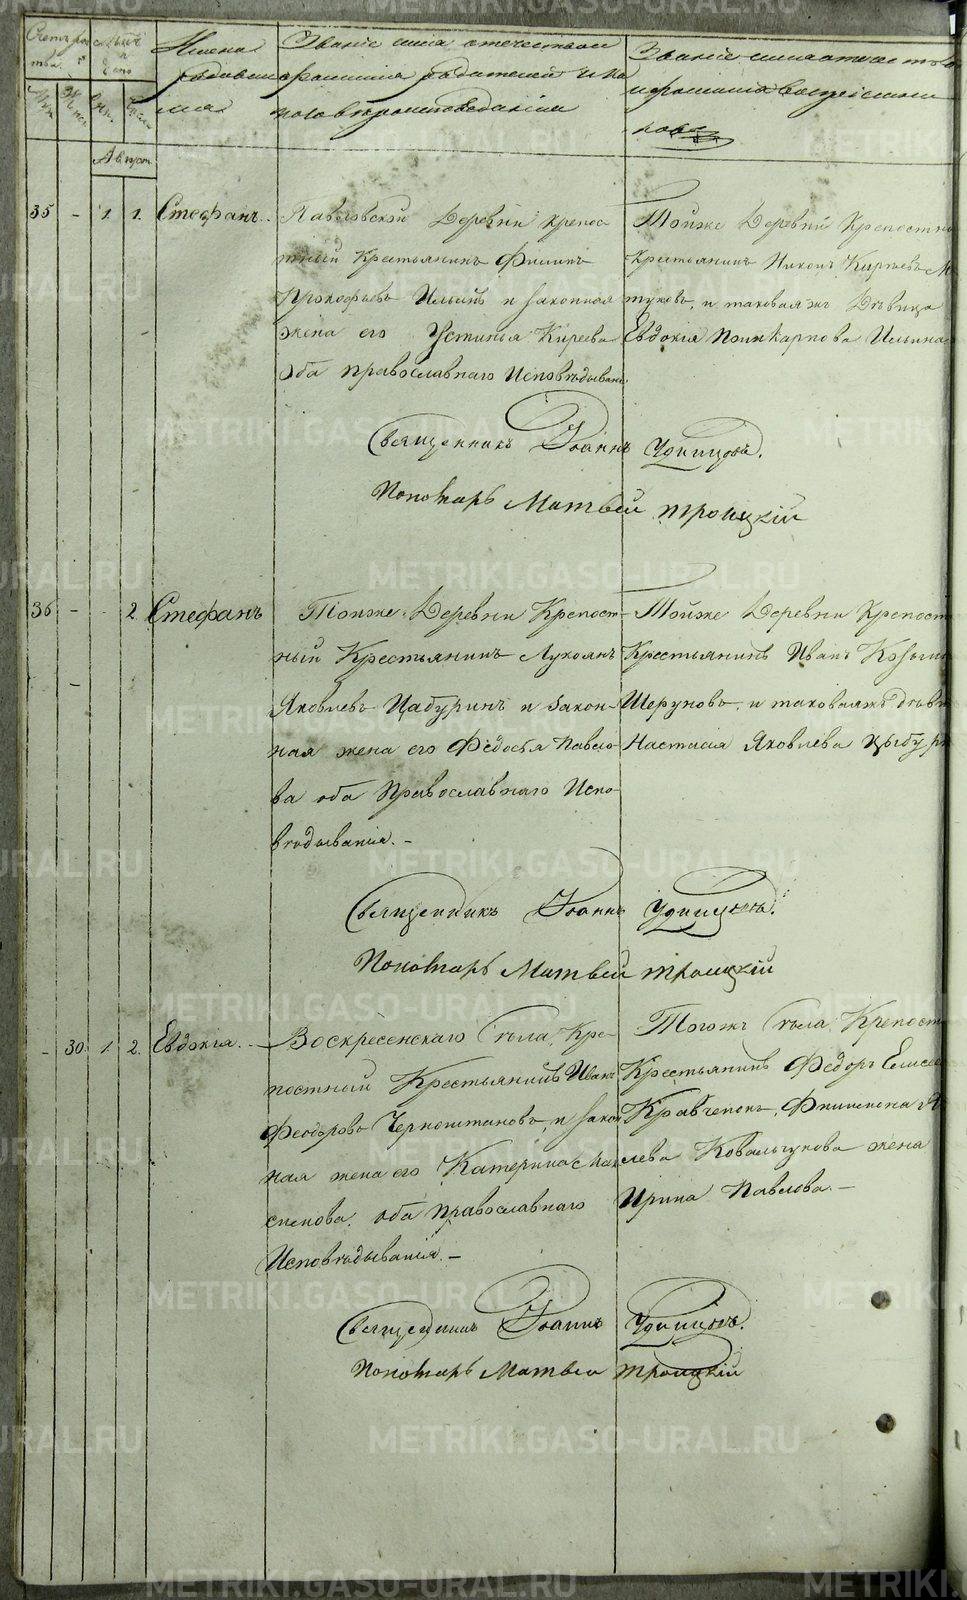 Имена родившихся
Званіе имя отечество и фамилія родителей и какого вѣроисповѣданія
Званіе имя отечество и фамилія воспріемниковъ
Августъ
35 - 1. 1. Стефанъ.
Павловской Деревни крепос
тный Крестьянинъ Филипъ
Прокофьевъ Ильинъ и законная
жена его Устинья Киреева
Оба православнаго Исповѣдыван.
Тойже Деревни Крепостно
Крестьянинъ Никонъ Карпевъ
и таковая жъ Дѣвица
Евдокія Поликарпова Ильина
Священникъ Іоаннъ Удинцовъ.
Пономарь Матвей Троицкій
36 - - 2 Стефанъ
Тойже Деревни Крепост-
ный Крестьянинъ Лукоянъ
Яковлевъ Цабуринъ и закон-
ная жена его Федосья Павло-
ва оба Православнаго Испо-
вѣдыванія. -
Тойже Деревни Крепост
Крестьянинъ Иванъ Козьми
Шеруновъ, и таковаяжъ дѣви
Настасія Яковлева Цыбури
Священникъ Іоаннъ Удинцовъ.
Пономарь Матвей Троицкій
- 30 1. 2. Евдокія. -
Воскресенскаго Села, Кре-
постный Крестьянинъ Иванъ
Феодоровъ Черноштановъ, и закон
ная жена его Катерина
оба православнаго
Исповѣдыванія. -
Тогожъ Села Крепост
Крестьянинъ Федоръ Елисее
Кравченокъ, Филимона
Ковальчукова жена
Ирина Павлова. -
Священникъ Іоаннъ Удинцовъ.
Пономарь Матвей Троицкій
METRIKI.GASO-URAL.RU